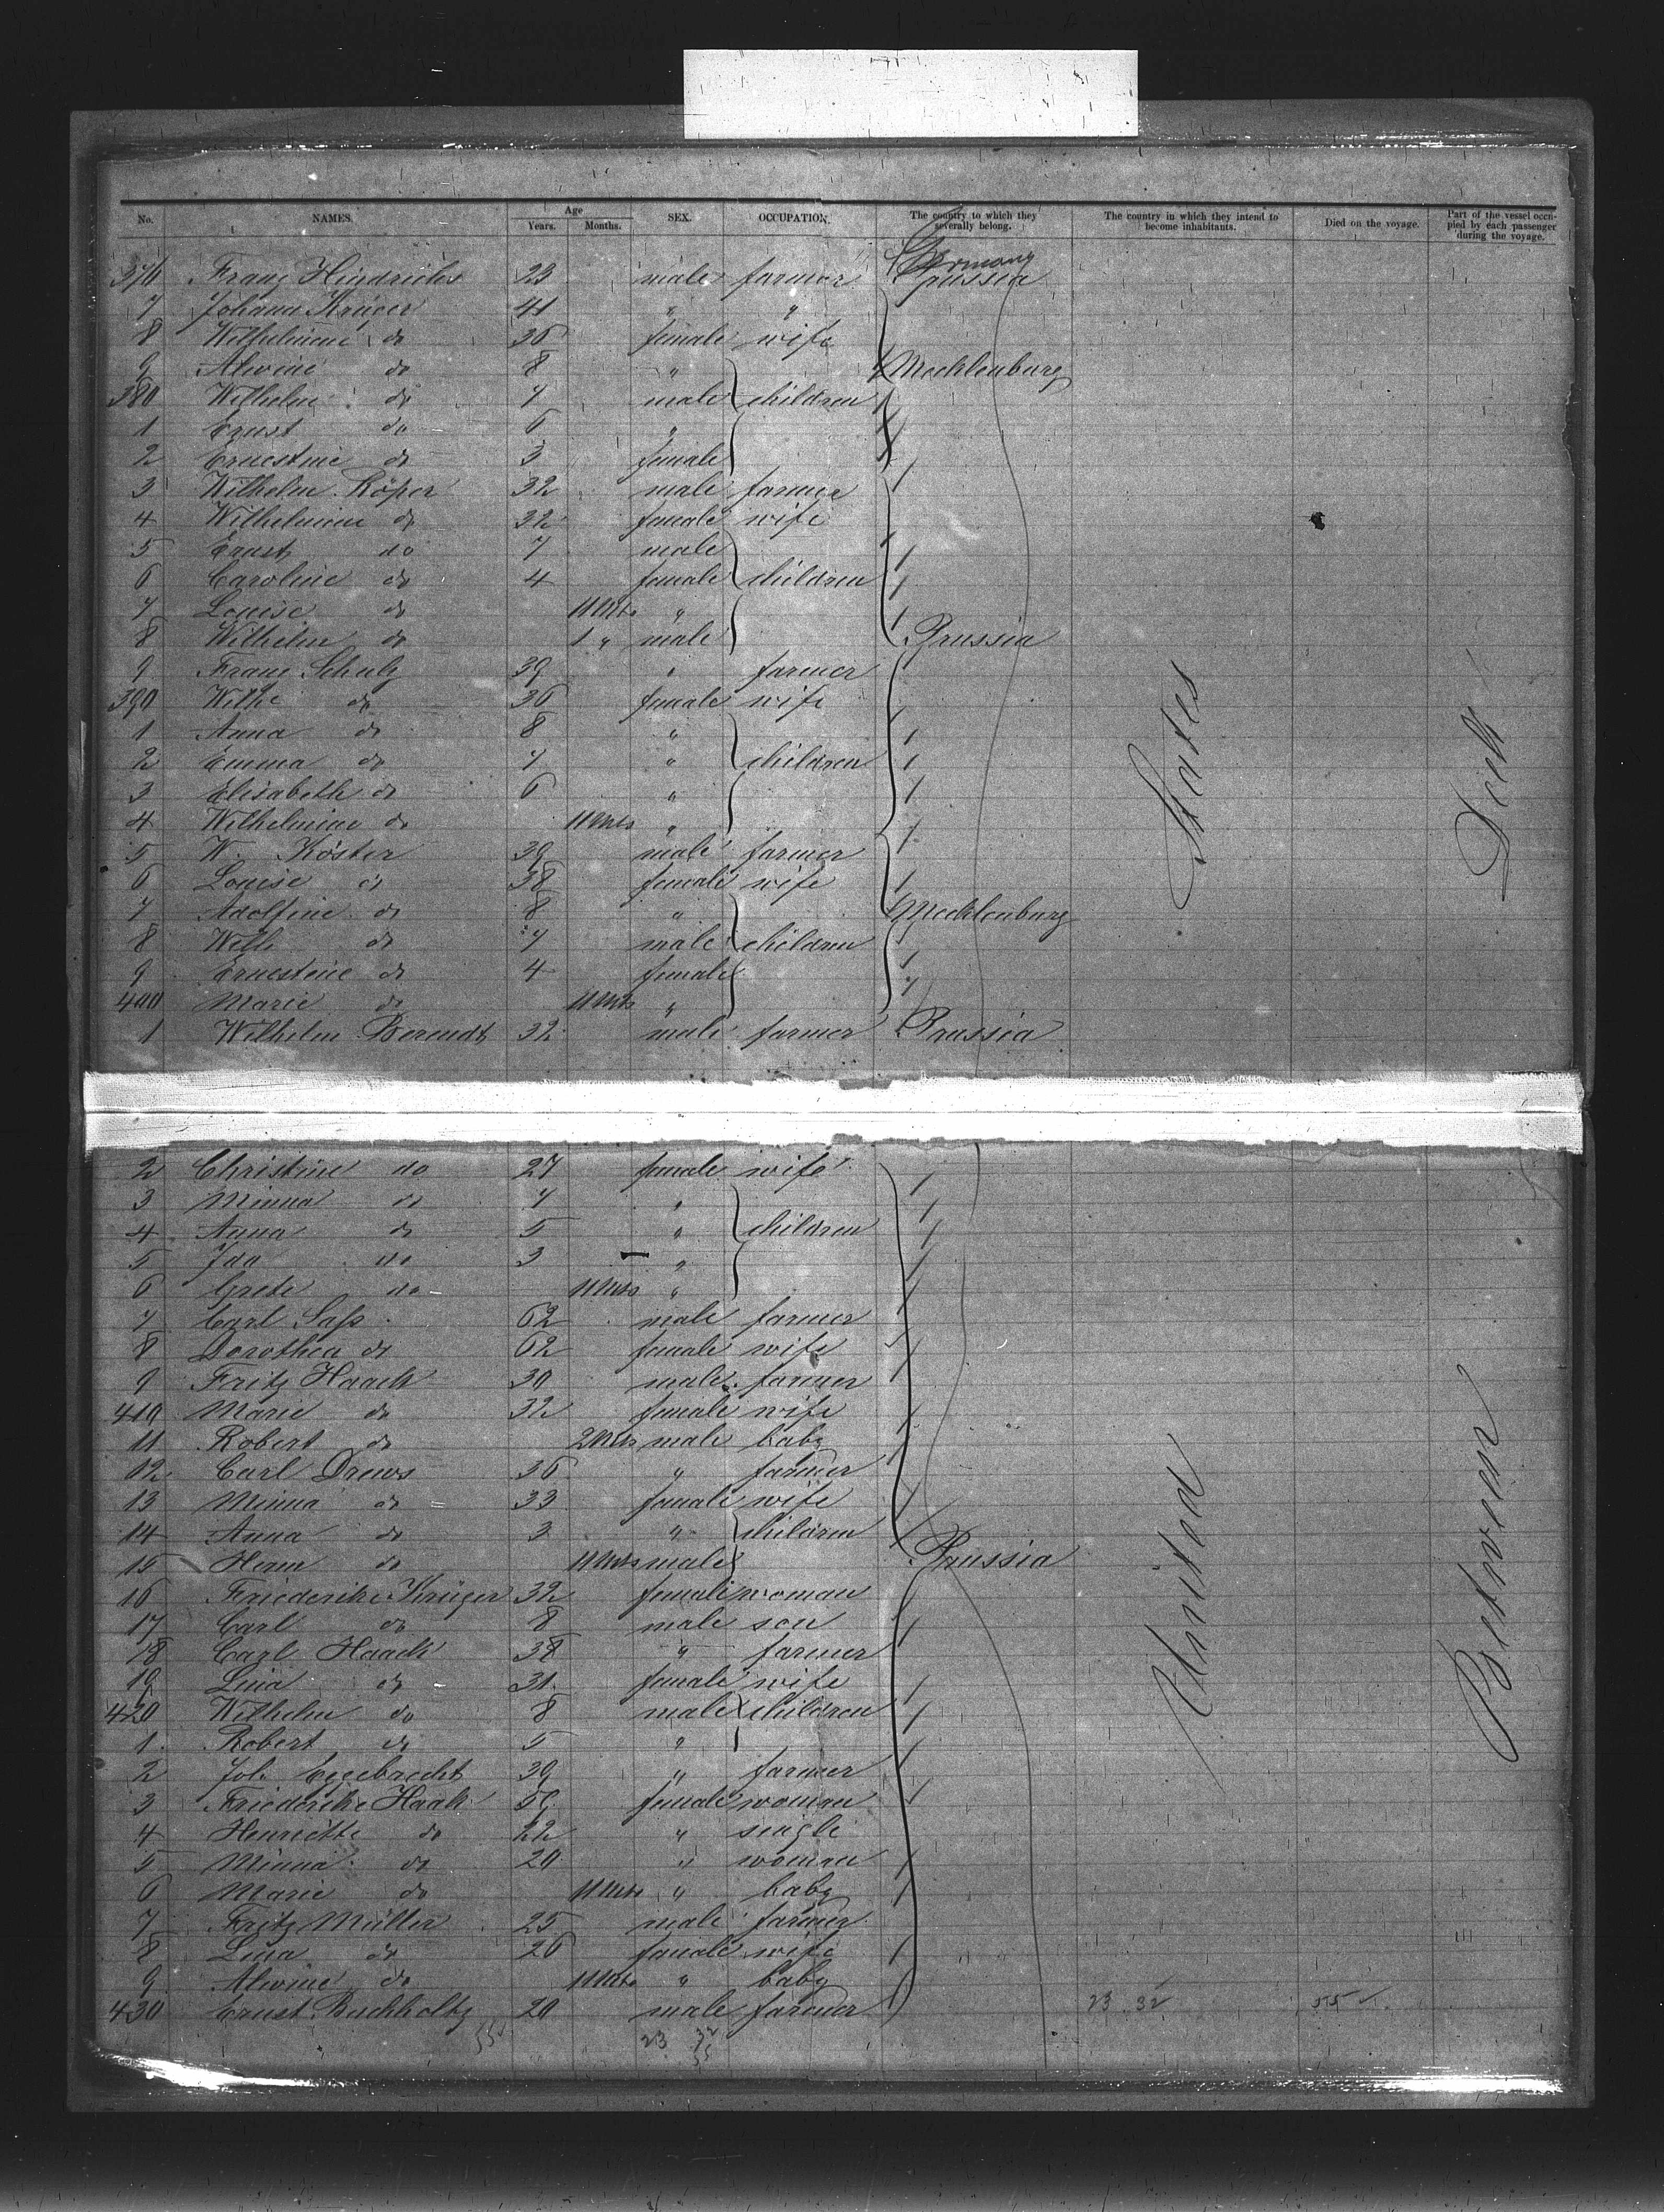 No. NAMES. Age Years. Months. SEX. OCCUPATION. The country to which they severally belong. The country in which they intend to become inhabitants. Died on the voyage. Part of the vessel occupied by each passenger during the voyage.
Germany
376 Franz Hindrichs 23 male farmer Prussia
7 Johann Krüger 41 " "
8 Wilhelmine do 36 female wife
9 Alwine do 8 " Mecklenburg
380 Wilhelm do 7 male children
1 Ernst do 6 "
2 Ernestine do 3 female
3 Wilhelm Röper 32 male farmer
4 Wilhelmine do 32 female wife
5 Ernst do 7 male
6 Caroline do 4 female children
7 Louise do 11 Mts "
8 Wilhelm do 1 " male Prussia
9 Franz Schulz 39 " farmer
390 Wilhe do 36 female wife
1 Anna do 8 "
2 Emma do 7 " children
3 Elisabeth do 6 "
4 Wilhelmine do 11 Mts "
5 W. Köster 39 male farmer
6 Louise do 38 female wife
7 Adolfine do 8 " Mecklenburg
8 Wilh do 7 male children
9 Ernestine do 4 female
400 Marie do 11 Mts "
1 Wilhelm Berendt 32 male farmer Prussia
2 Christine do 27 female wife
3 Minna do 7 "
4 Anna do 5 " children
5 Ida do 3 "
6 Grete do 11 Mts "
7 Carl Saß 62 male farmer
8 Dorothea do 62 female wife
9 Fritz Haack 30 male farmer
410 Marie do 32 female wife
11 Robert do 2 Mts male baby
12 Carl Drews 36 " farmer
13 Minna do 33 female wife
14 Anna do 3 " children
15 Herm do 11 Mts male Prussia
16 Friederike Krüger 32 female woman
17 Carl do 8 male son
18 Carl Haack 38 " farmer
19 Lina do 31 female wife
420 Wilhelm do 8 male children
1 Robert do 5 "
2 Joh. Eggebrecht 39 " farmer
3 Friederike Haak female woman
4 Henriette do 22 " single
5 Minna do 20 " woman
6 Marie do 11 Mts " baby
7 Fritz Müller 25 male farmer
8 Lina do 26 female wife
9 Alwine do 11 Mts " baby
430 Ernst Buchholtz 20 male farmer 23 32 55
55 23 32
55
United States
Between Deck